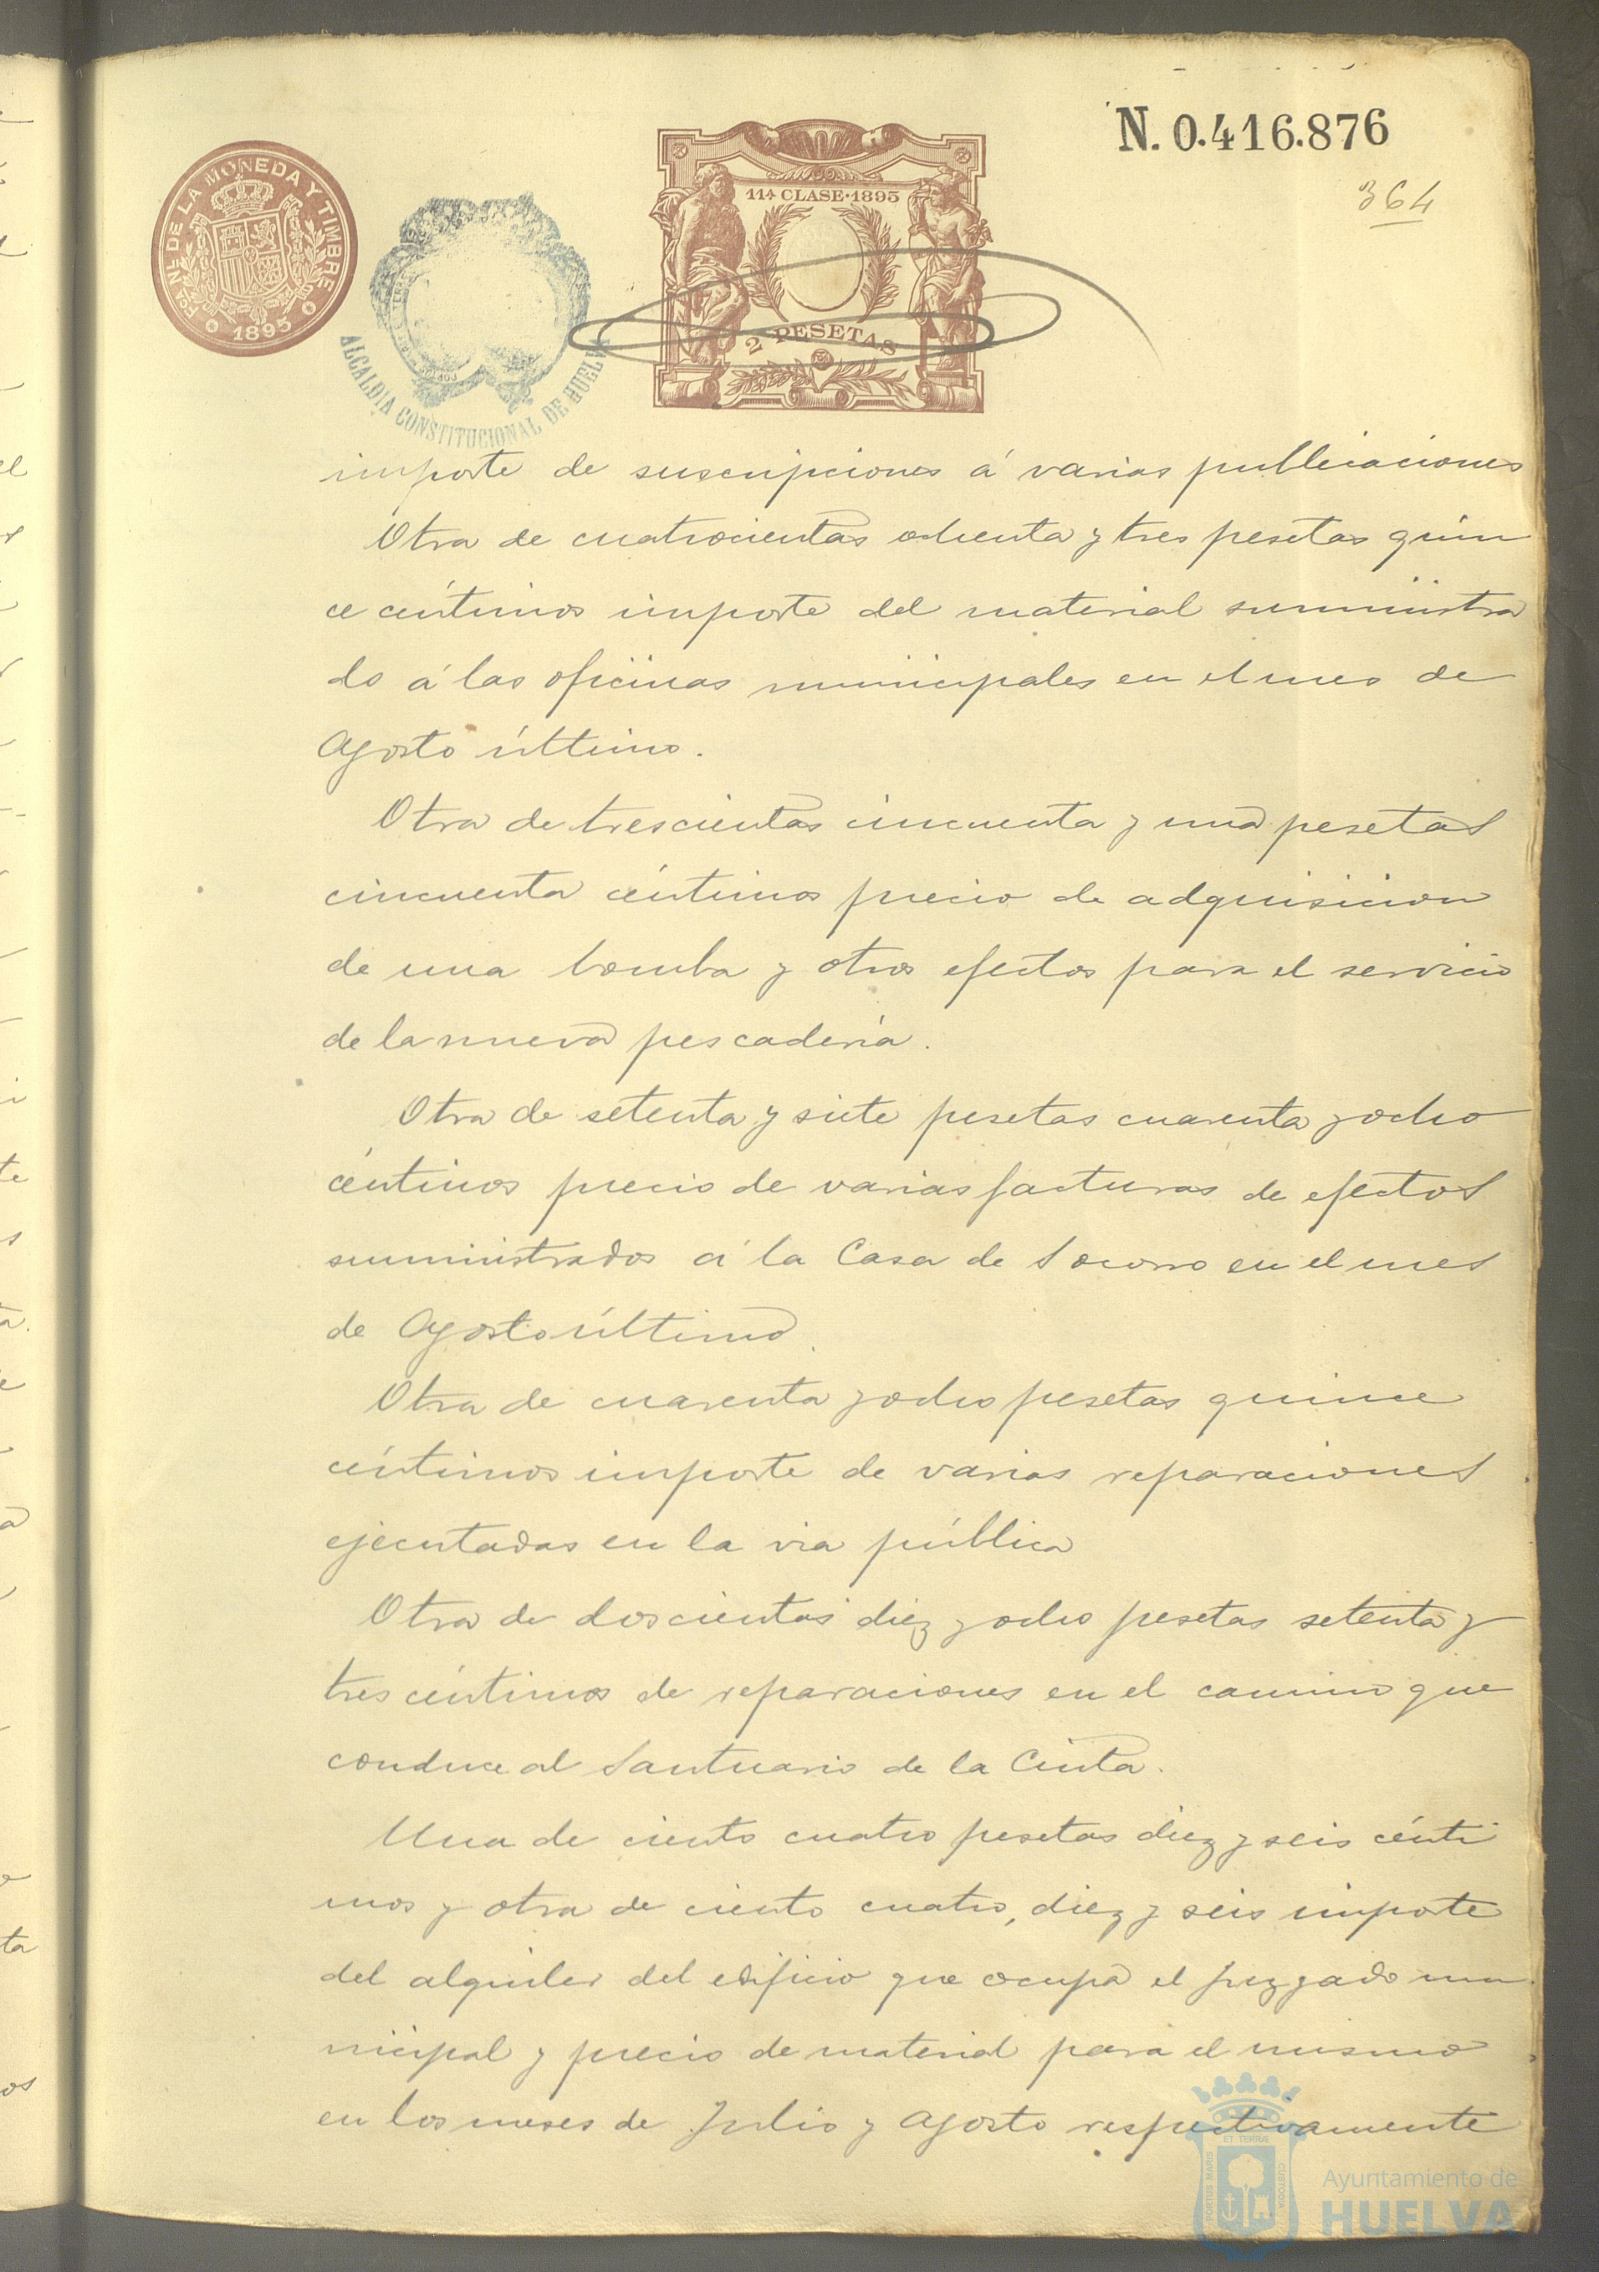 N. 0.416.876
364
FCA. NL. DE LA MONEDA Y TIMBRE
1895
ALCALDIA CONSTITUCIONAL DE HUELVA
11ª CLASE·1895
2 PESETAS
importe de suscripciones á varias publicaciones
Otra de cuatrocientas ochenta y tres pesetas quin
ce céntimos importe del material suministra
do á las oficinas municipales en el mes de
Agosto último.
Otra de trescientas cincuenta y una pesetas
cincuenta céntimos precio de adquisicion
de una bomba y otros efectos para el servicio
de la nueva pescadería.
Otra de setenta y siete pesetas cuarenta y ocho
céntimos precio de varias facturas de efectos
suministrados á la Casa de Socorro en el mes
de Agosto último.
Otra de cuarenta y ocho pesetas quince
céntimos importe de varias reparaciones
ejecutadas en la via pública
Otra de doscientas diez y ocho pesetas setenta y
tres céntimos de reparaciones en el camino que
conduce al Santuario de la Cinta.
Una de ciento cuatro pesetas diez y seis cénti
mos y otra de ciento cuatro, diez y seis importe
del alquiler del edificio que ocupa el juzgado mu
nicipal y precio de material para el mismo
en los meses de Julio y Agosto respectivamente
PORTUS MARIS ET TERRÆ CUSTODIA
Ayuntamiento de
HUELVA